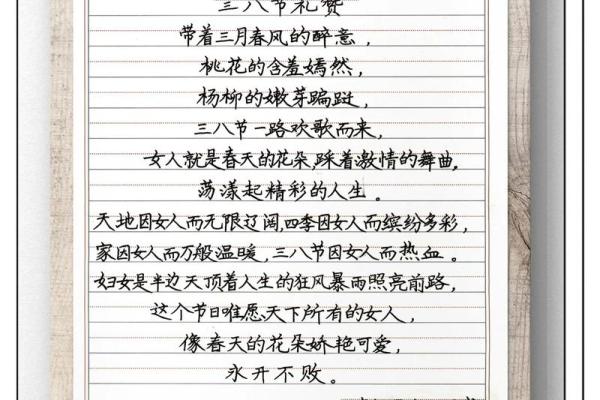 三八节礼赞
带着三月春风的醉意，
桃花的含羞嫣然，
杨柳的嫩芽蹁跹，
三八节一路欢歌而来，
女人就是春天的花朵，踩着激情的舞曲，
荡漾起精彩的人生。
天地因女人而无限辽阔，四季因女人而缤纷多彩，
家因女人而万般温暖，三八节因女人而热血。
妇女是半边天顶着人生的狂风暴雨照亮前路，
这个节日唯愿天下所有的女人，
像春天的花朵娇艳可爱，
永开不败。